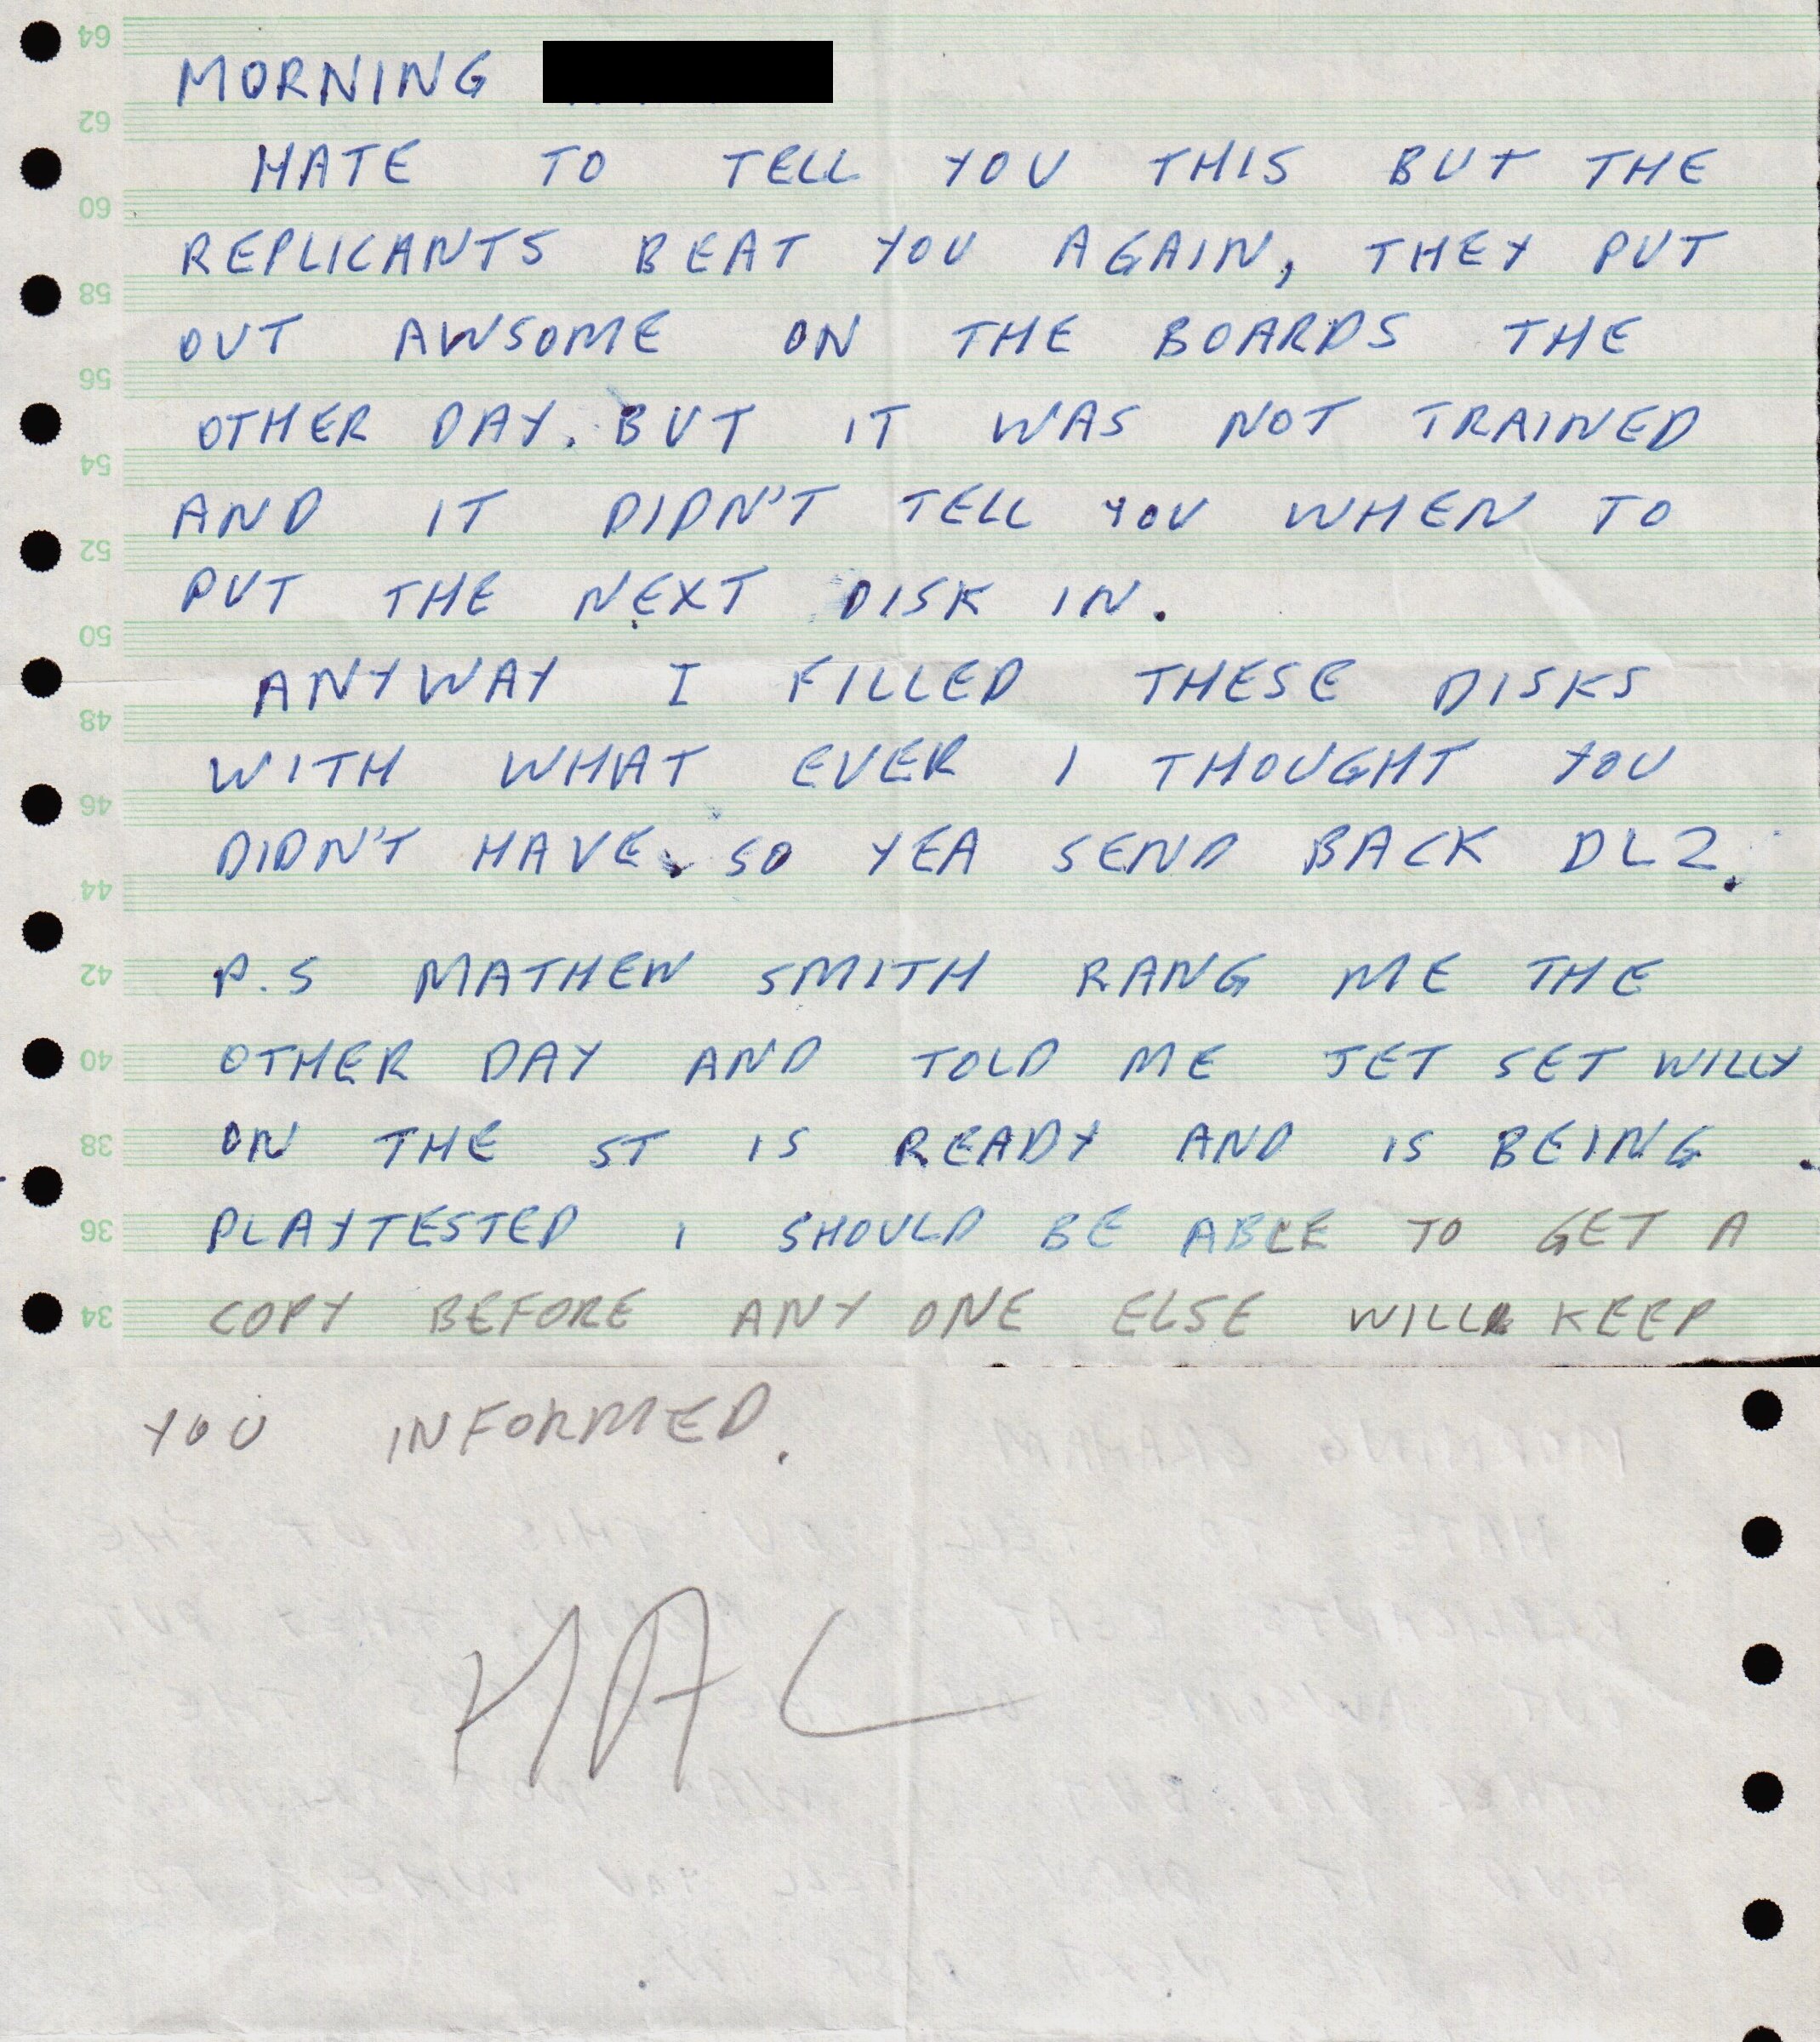 64
MORNING
62
HATE TO TELL YOU THIS BUT THE
60
REPLICANTS BEAT YOU AGAIN, THEY PUT
58
OUT AWSOME ON THE BOARDS THE
56
OTHER DAY. BUT IT WAS NOT TRAINED
54
AND IT DIDN'T TELL YOU WHEN TO
52
PUT THE NEXT DISK IN.
50
ANYWAY I FILLED THESE DISKS
48
WITH WHAT EVER I THOUGHT YOU
46
DIDN'T HAVE. SO YEA SEND BACK DL2.
44
42
P.S MATHEW SMITH RANG ME THE
40
OTHER DAY AND TOLD ME JET SET WILLY
38
ON THE ST IS READY AND IS BEING
36
PLAYTESTED I SHOULD BE ABLE TO GET A
34
COPY BEFORE ANY ONE ELSE WILL KEEP
YOU INFORMED.